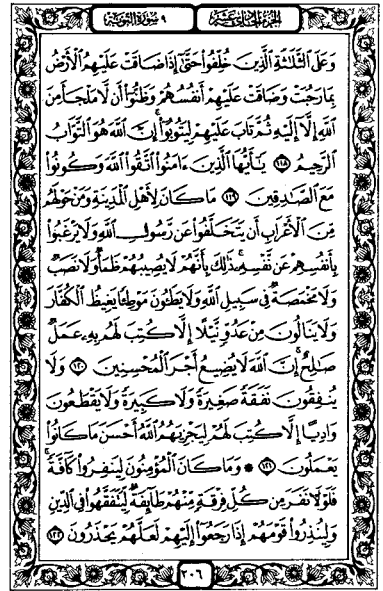 الجزء الحادي عشر ٩ سورة التوبة
وَعَلَى ٱلثَّلَٰثَةِ ٱلَّذِينَ خُلِّفُوا۟ حَتَّىٰٓ إِذَا ضَاقَتْ عَلَيْهِمُ ٱلْأَرْضُ
بِمَا رَحُبَتْ وَضَاقَتْ عَلَيْهِمْ أَنفُسُهُمْ وَظَنُّوٓا۟ أَن لَّا مَلْجَأَ مِنَ
ٱللَّهِ إِلَّآ إِلَيْهِ ثُمَّ تَابَ عَلَيْهِمْ لِيَتُوبُوٓا۟ إِنَّ ٱللَّهَ هُوَ ٱلتَّوَّابُ
ٱلرَّحِيمُ ١١٨ يَٰٓأَيُّهَا ٱلَّذِينَ ءَامَنُوا۟ ٱتَّقُوا۟ ٱللَّهَ وَكُونُوا۟
مَعَ ٱلصَّٰدِقِينَ ١١٩ مَا كَانَ لِأَهْلِ ٱلْمَدِينَةِ وَمَنْ حَوْلَهُم
مِّنَ ٱلْأَعْرَابِ أَن يَتَخَلَّفُوا۟ عَن رَّسُولِ ٱللَّهِ وَلَا يَرْغَبُوا۟
بِأَنفُسِهِمْ عَن نَّفْسِهِۦ ذَٰلِكَ بِأَنَّهُمْ لَا يُصِيبُهُمْ ظَمَأٌ وَلَا نَصَبٌ
وَلَا مَخْمَصَةٌ فِى سَبِيلِ ٱللَّهِ وَلَا يَطَـُٔونَ مَوْطِئًا يَغِيظُ ٱلْكُفَّارَ
وَلَا يَنَالُونَ مِنْ عَدُوٍّ نَّيْلًا إِلَّا كُتِبَ لَهُم بِهِۦ عَمَلٌ
صَٰلِحٌ إِنَّ ٱللَّهَ لَا يُضِيعُ أَجْرَ ٱلْمُحْسِنِينَ ١٢٠ وَلَا
يُنفِقُونَ نَفَقَةً صَغِيرَةً وَلَا كَبِيرَةً وَلَا يَقْطَعُونَ
وَادِيًا إِلَّا كُتِبَ لَهُمْ لِيَجْزِيَهُمُ ٱللَّهُ أَحْسَنَ مَا كَانُوا۟
يَعْمَلُونَ ١٢١ ۞ وَمَا كَانَ ٱلْمُؤْمِنُونَ لِيَنفِرُوا۟ كَآفَّةً
فَلَوْلَا نَفَرَ مِن كُلِّ فِرْقَةٍ مِّنْهُمْ طَآئِفَةٌ لِّيَتَفَقَّهُوا۟ فِى ٱلدِّينِ
وَلِيُنذِرُوا۟ قَوْمَهُمْ إِذَا رَجَعُوٓا۟ إِلَيْهِمْ لَعَلَّهُمْ يَحْذَرُونَ ١٢٢
٢٠٦